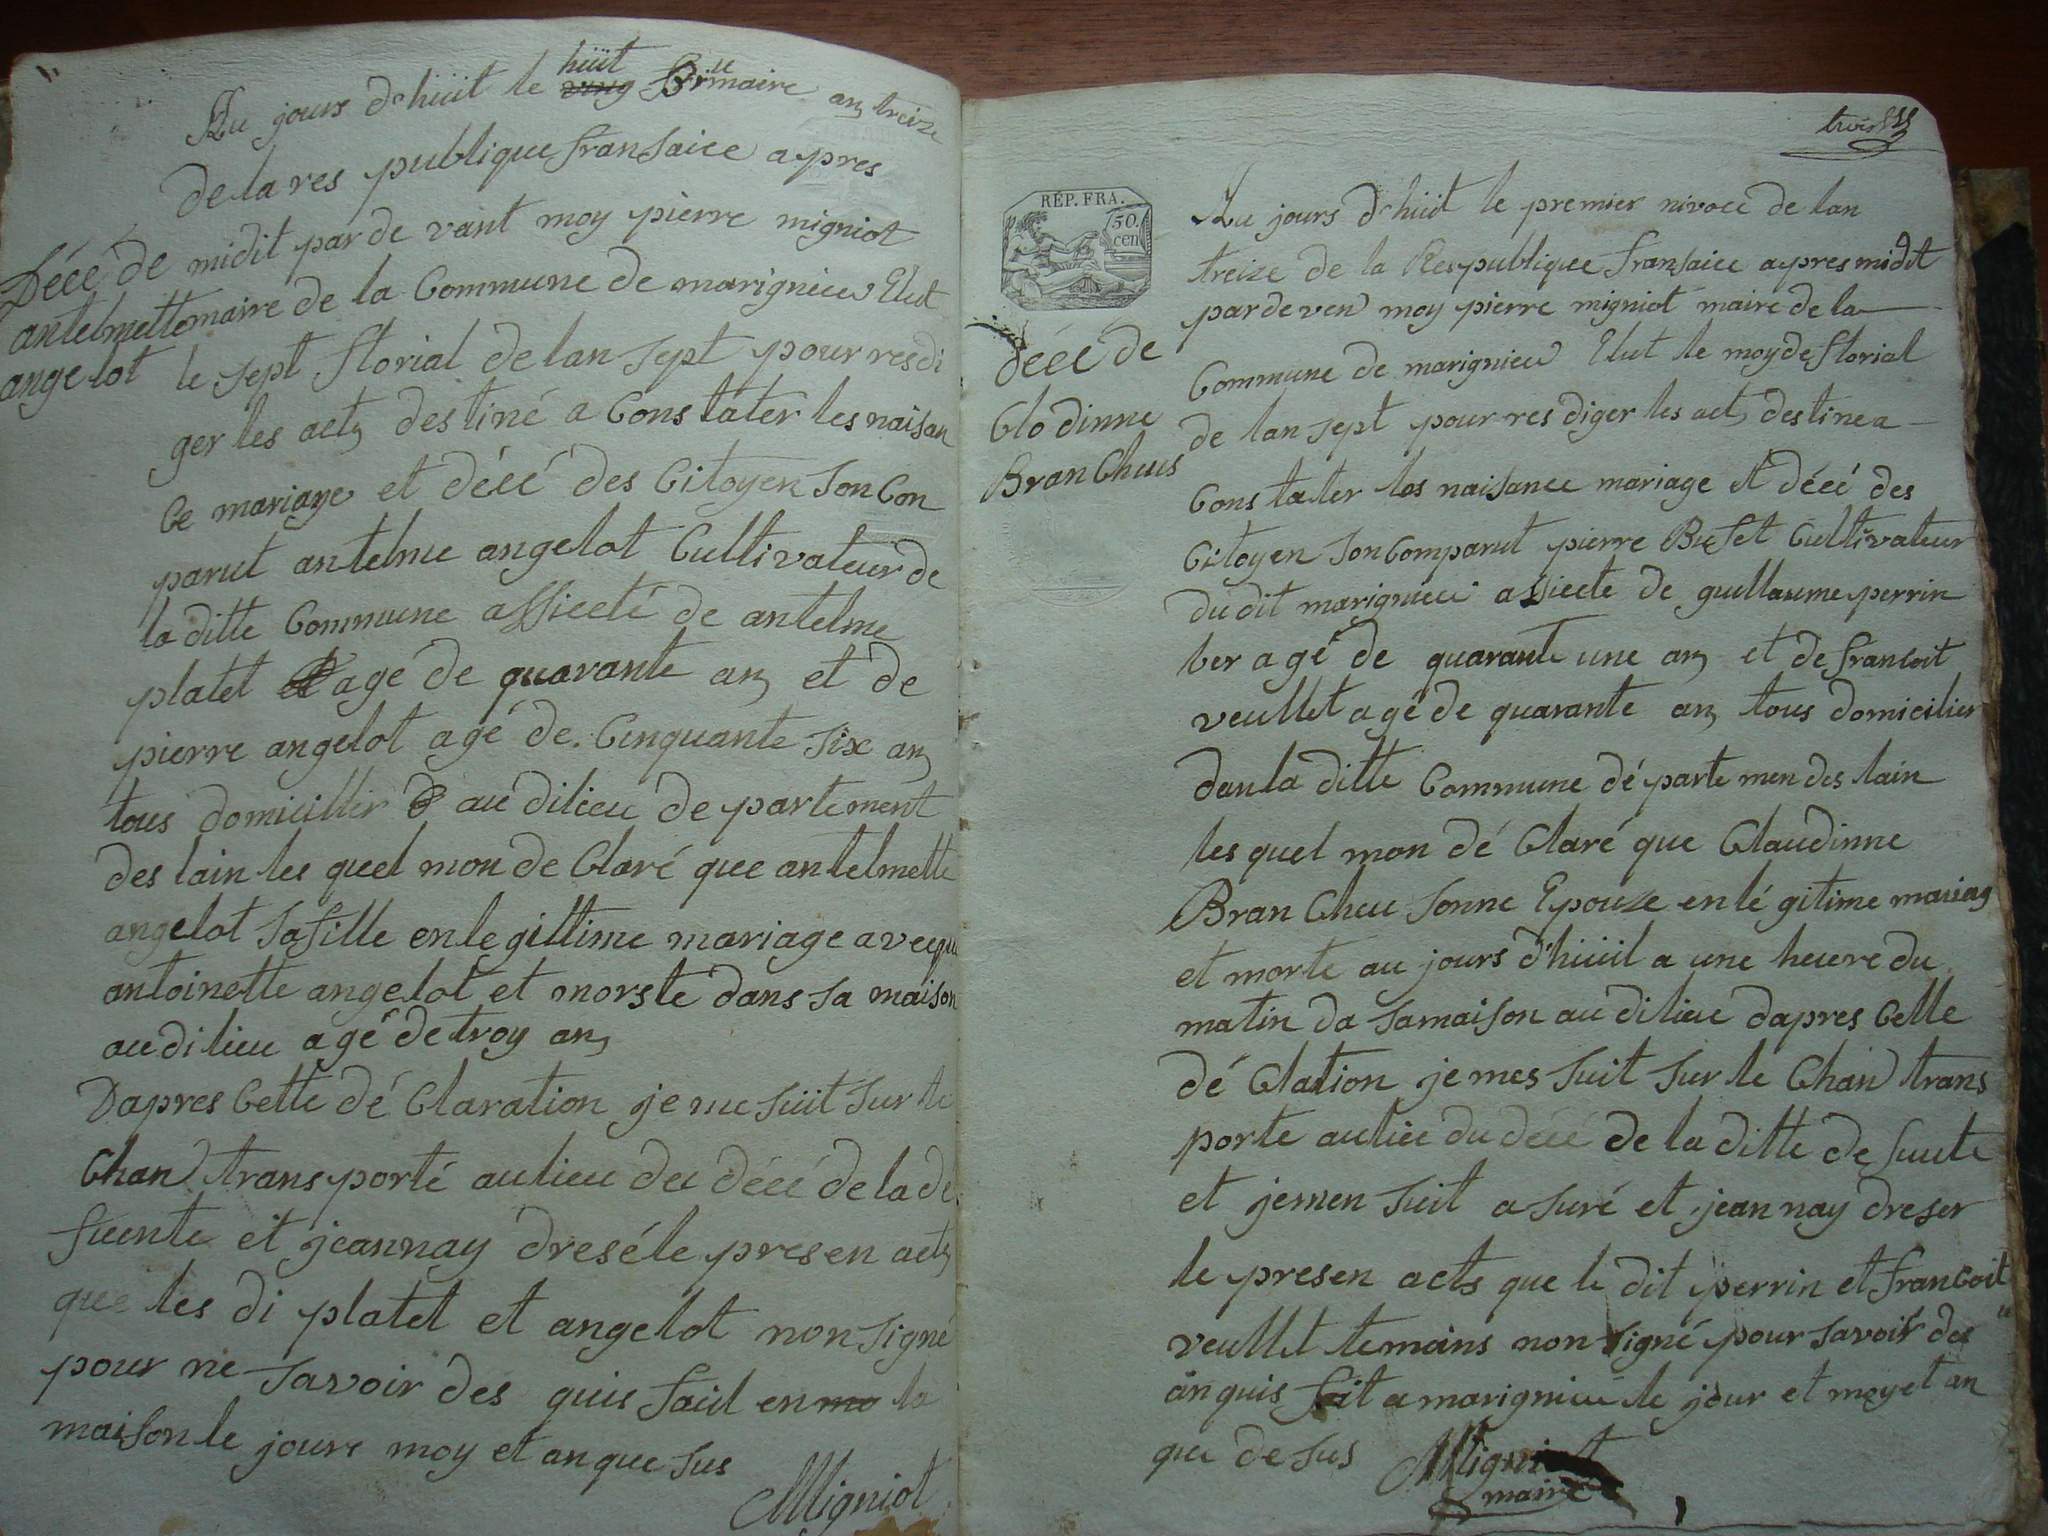 Au jours d'huit le huit Brimaire an treize
de la res publique fransaice apres
midit par de vant moy pierre migniot
maire de la Commune de marignieu Elut
le sept florial de lan sept pour resdi
ger les acts destiné a Constater les naisan
Ce mariage et décé des Citoyen son Con
parut antelme angelot Cultivateur de
la ditte Commune assiecté de antelme
platet agé de quarante an et de
pierre angelot agé de Cinquante six an
tous domicillier au di lieu de partement
des lain les quel mon de Claré que antelmette
angelot sa fille en le gittime mariage avecque
antoinette angelot et morste dans sa maison
au di lieu agé de troy an
Dapres Cette dé Claration je me suit sur le
Chan trans porté au lieu du décé de la de
funte et jeannay dresé le presen acts
que les di platet et angelot non signé
pour ne savoir des quis fait en la
maison le jours moy et an que sus
Migniot
Décé de
antelmette
angelot
RÉP. FRA.
50.
cen
décé de
Clo dinne
Bran Chus
Au jours d'huit le premier nivoce de lan
treize de la Respublique fransaice apres midit
par de ven moy pierre migniot maire de la
Commune de marignieu Elut le moy de florial
de lan sept pour res diger les act destine a
Cons tater les naisance mariage et décé des
Citoyen son Comparut pierre Buset Cultivateur
du dit marignieu assiecte de guillaume perrin
ber agé de quarante une an et de fransoit
veullet agé de quarante an tous domicilier
dan la ditte Commune dé parte men des lain
les quel mon dé Claré que Claudinne
Bran Cheu sonne Epouze en lé gitime mariag
et morte au jours d'huil a une heure du
matin da sa maison au di lieu dapres Cette
dé Clation je mes suit sur le Chan trans
porte au lieu du décé de la ditte de funte
et jemen suit a suré et jean nay dreser
le presen acts que le dit perrin et francoit
veullet temoins non signé pour savoir de
an quis fait a marignieu le jour et moy et an
que de sus Migniot
maire